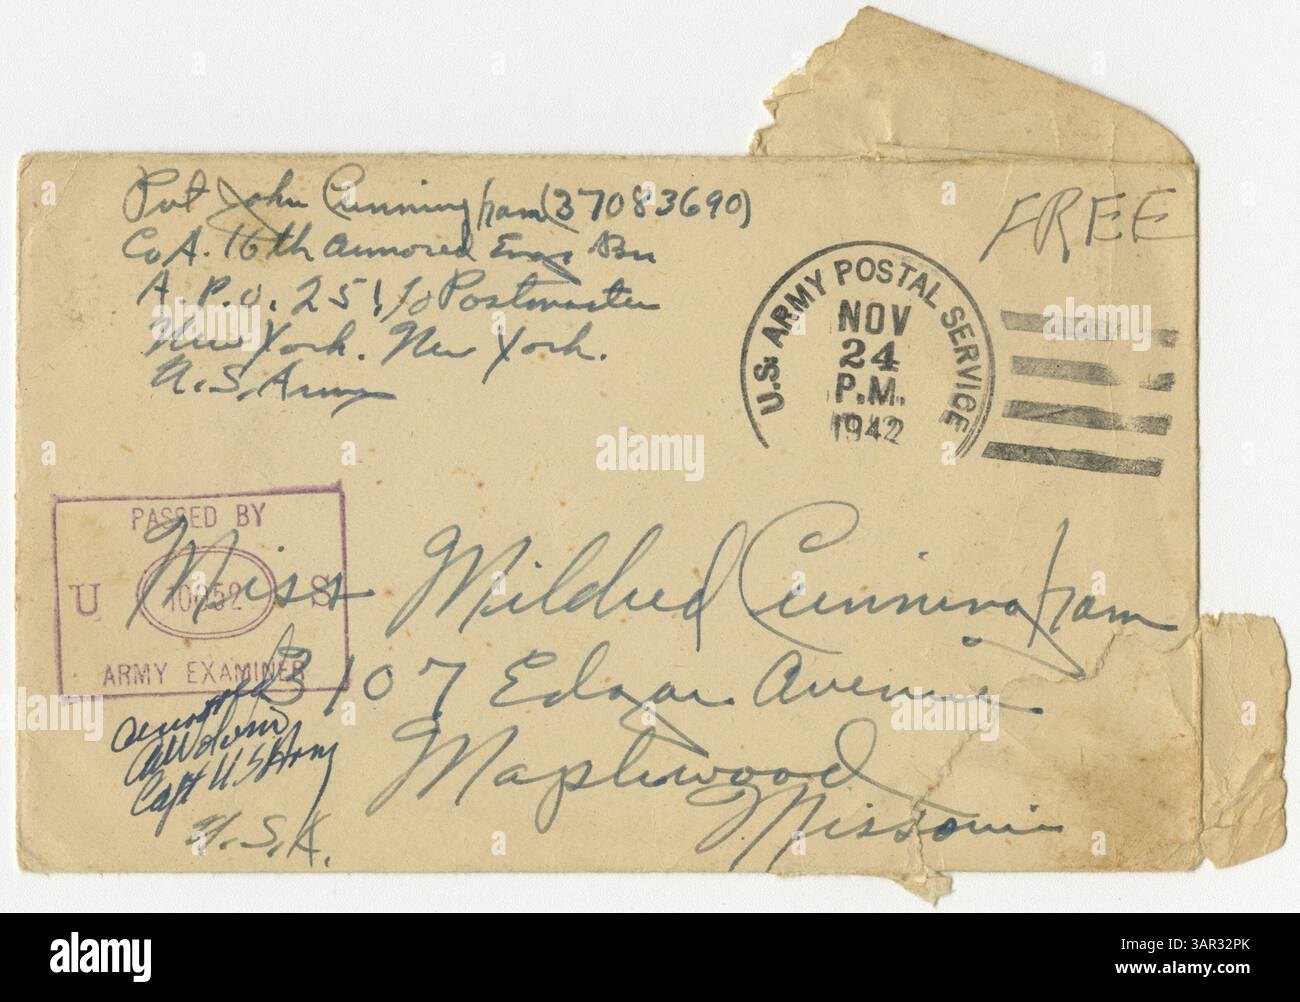 Pvt John Cunningham (37083690)
Co A. 16th Armored Engr Bn
A.P.O. 251, c/o Postmaster
New York. New York.
U.S. Army
FREE
U.S. ARMY POSTAL SERVICE
NOV
24
P.M.
1942
PASSED BY
U 10052 S
ARMY EXAMINER
Miss Mildred Cunningham
3107 Edgar Avenue
Maplewood
Missouri
Capt US Army
U.S.A.
alamy
Image ID: 3AR32PK
www.alamy.com